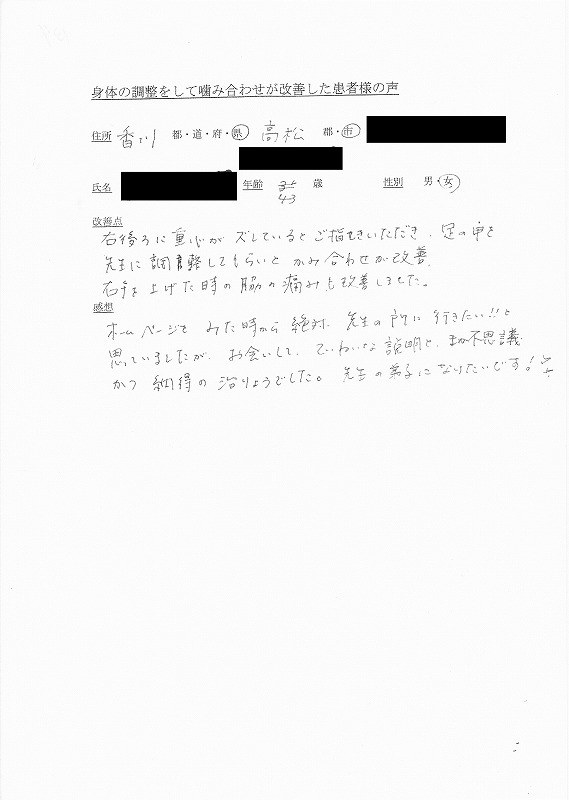 身体の調整をして噛み合わせが改善した患者様の声
住所 香川 都・道・府・県 高松 郡・市
氏名 年齢 43 歳 性別 男・女
改善点
右後ろに重心がズレているとご指てきいただき、足の中を
先生に調整してもらいと かみ合わせが改善、
右手を上げた時の脇の痛みも改善しました。
感想
ホームページを みた時から 絶対、先生の所に 行きたい!!と
思っていましたが、お会いして、ていねいな 説明と、不思議
かつ 納得の 治りょうでした。先生の弟子に なりたいです!